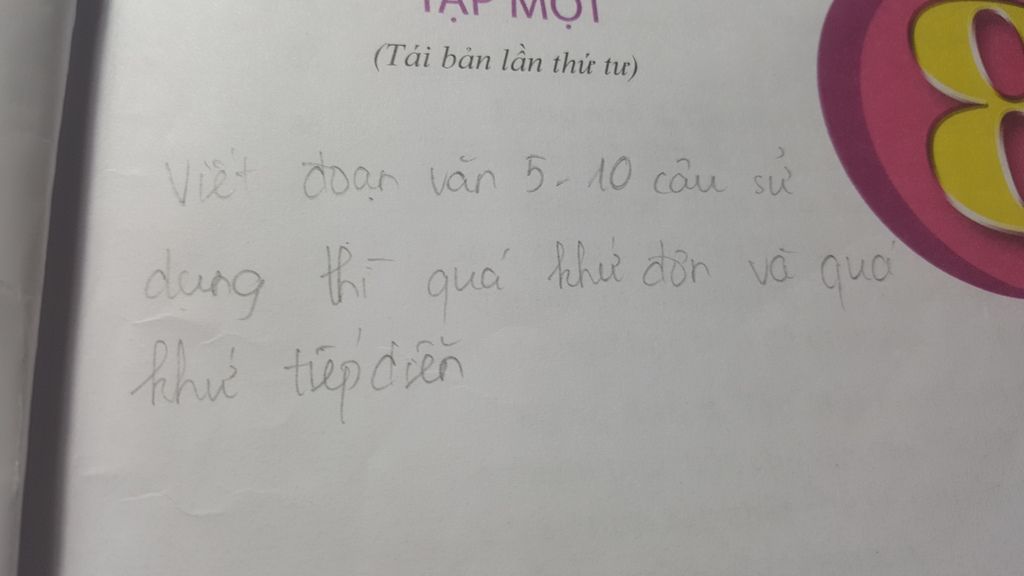 TẬP MỘT
(Tái bản lần thứ tư)
8
Viết đoạn văn 5-10 câu sử
dụng thì quá khứ đơn và quá
khứ tiếp diễn